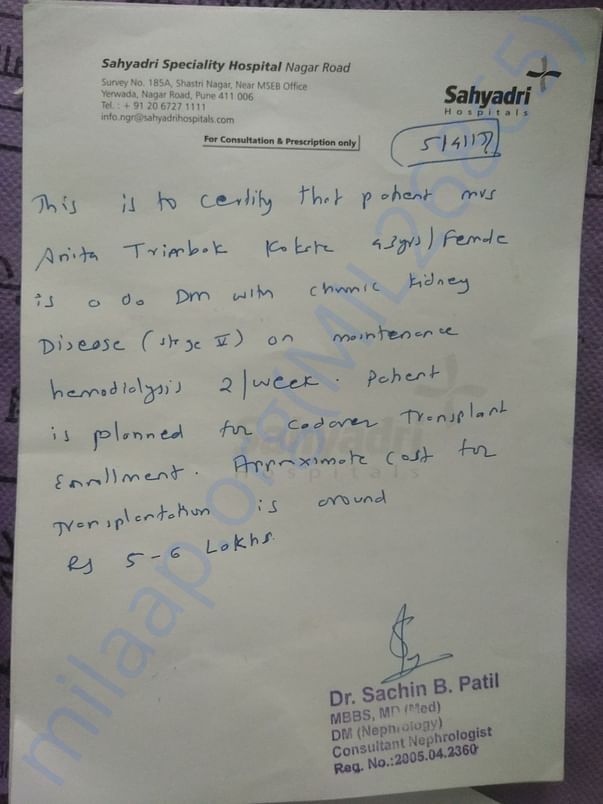 Sahyadri Speciality Hospital Nagar Road
Survey No. 185A, Shastri Nagar, Near MSEB Office
Yerwada, Nagar Road, Pune 411 006
Tel. : + 91 20 6727 1111
info.ngr@sahyadrihospitals.com
Sahyadri
Hospitals
For Consultation & Prescription only
This is to certify that patient mrs
Anita Trimbak Kokate 43yrs/Female
is a DM with chronic kidney
Disease (stage V) on maintenance
hemodialysis 2/week. Patient
is planned for cadaver Transplant
Enrollment. Approximate cost for
Transplantation is around
Rs 5-6 Lakhs.
Dr. Sachin B. Patil
MBBS, MD (Med)
DM (Nephrology)
Consultant Nephrologist
Reg. No.:2005.04.2360
Sahyadri
Hospitals